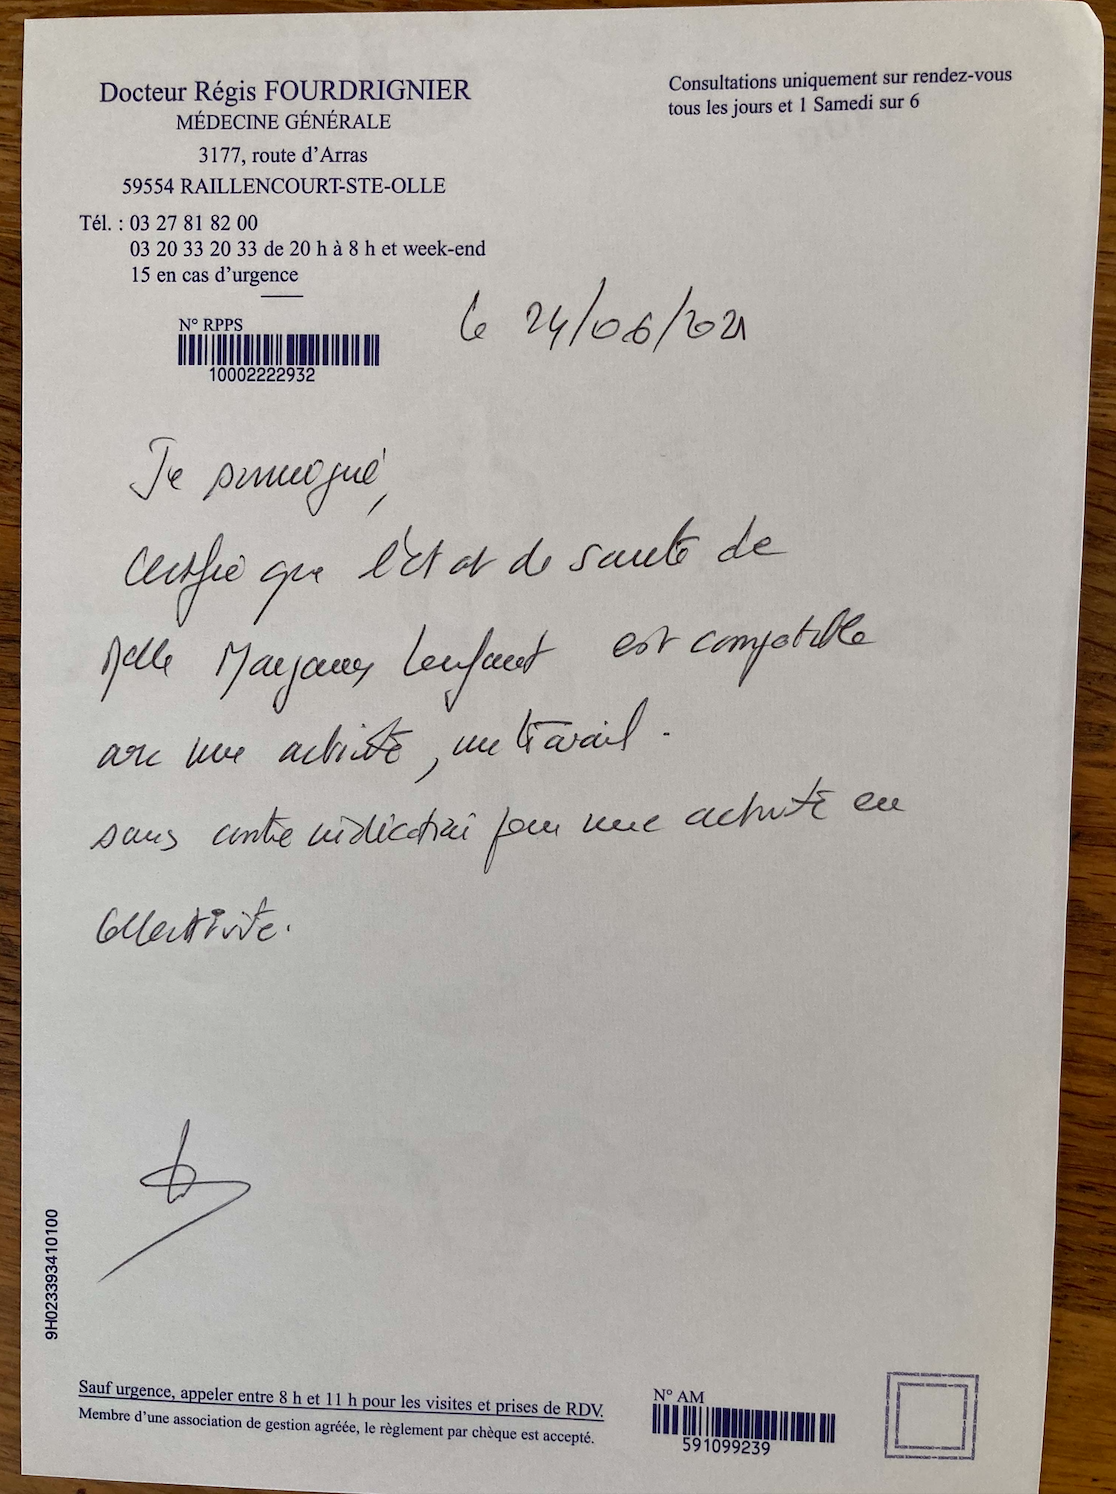 Docteur Régis FOURDRIGNIER
MÉDECINE GÉNÉRALE
3177, route d'Arras
59554 RAILLENCOURT-STE-OLLE
Tél. : 03 27 81 82 00
03 20 33 20 33 de 20 h à 8 h et week-end
15 en cas d'urgence
Consultations uniquement sur rendez-vous
tous les jours et 1 Samedi sur 6
N° RPPS
10002222932
le 24/06/2021
Je soussigné,
Certifie que l'état de santé de
Melle Lenfant est compatible
avec une activité, un travail.
sans contre indication pour une activité en
Collectivité.
9H023393410100
Sauf urgence, appeler entre 8 h et 11 h pour les visites et prises de RDV.
Membre d'une association de gestion agréée, le règlement par chèque est accepté.
N° AM
591099239